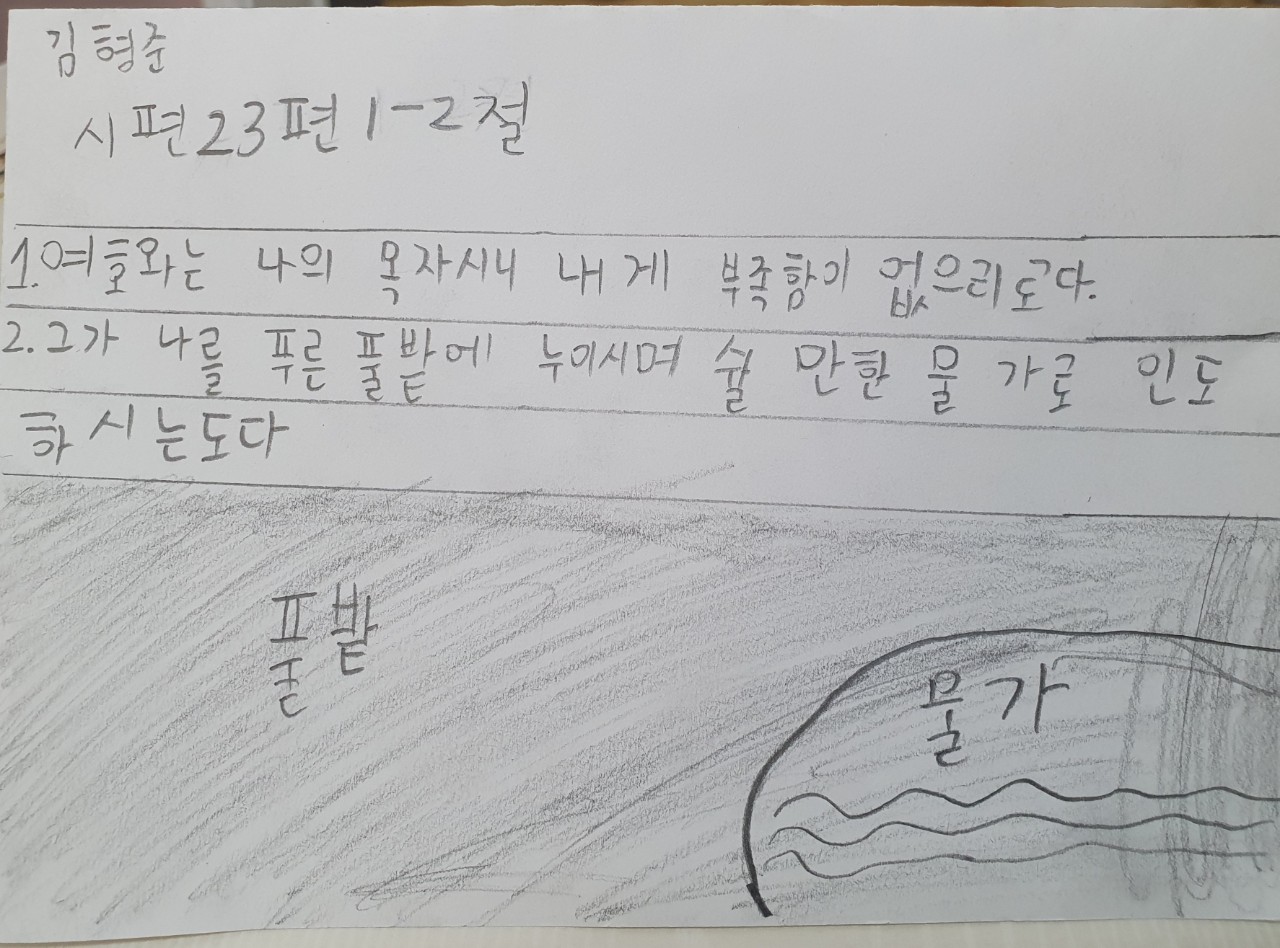 김형준
시편23편1-2절
1.여호와는 나의 목자시니 내게 부족함이 없으리로다.
2.그가 나를 푸른 풀밭에 누이시며 쉴 만한 물 가로 인도
하시는도다
풀밭
물가